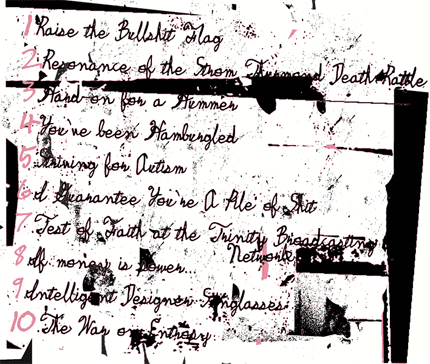 1 Raise the Bullshit Flag
2 Resonance of the Strom Thurmond Death Rattle
3 Hard on for a Hummer
4 You've been Hamburgled
5 Striving for Autism
6 I Guarantee You're A Pile of Shit
7 Test of Faith at the Trinity Broadcasting
Network
8 If money is power...
9 Intelligent Designer Sunglasses
10 The War on Entropy